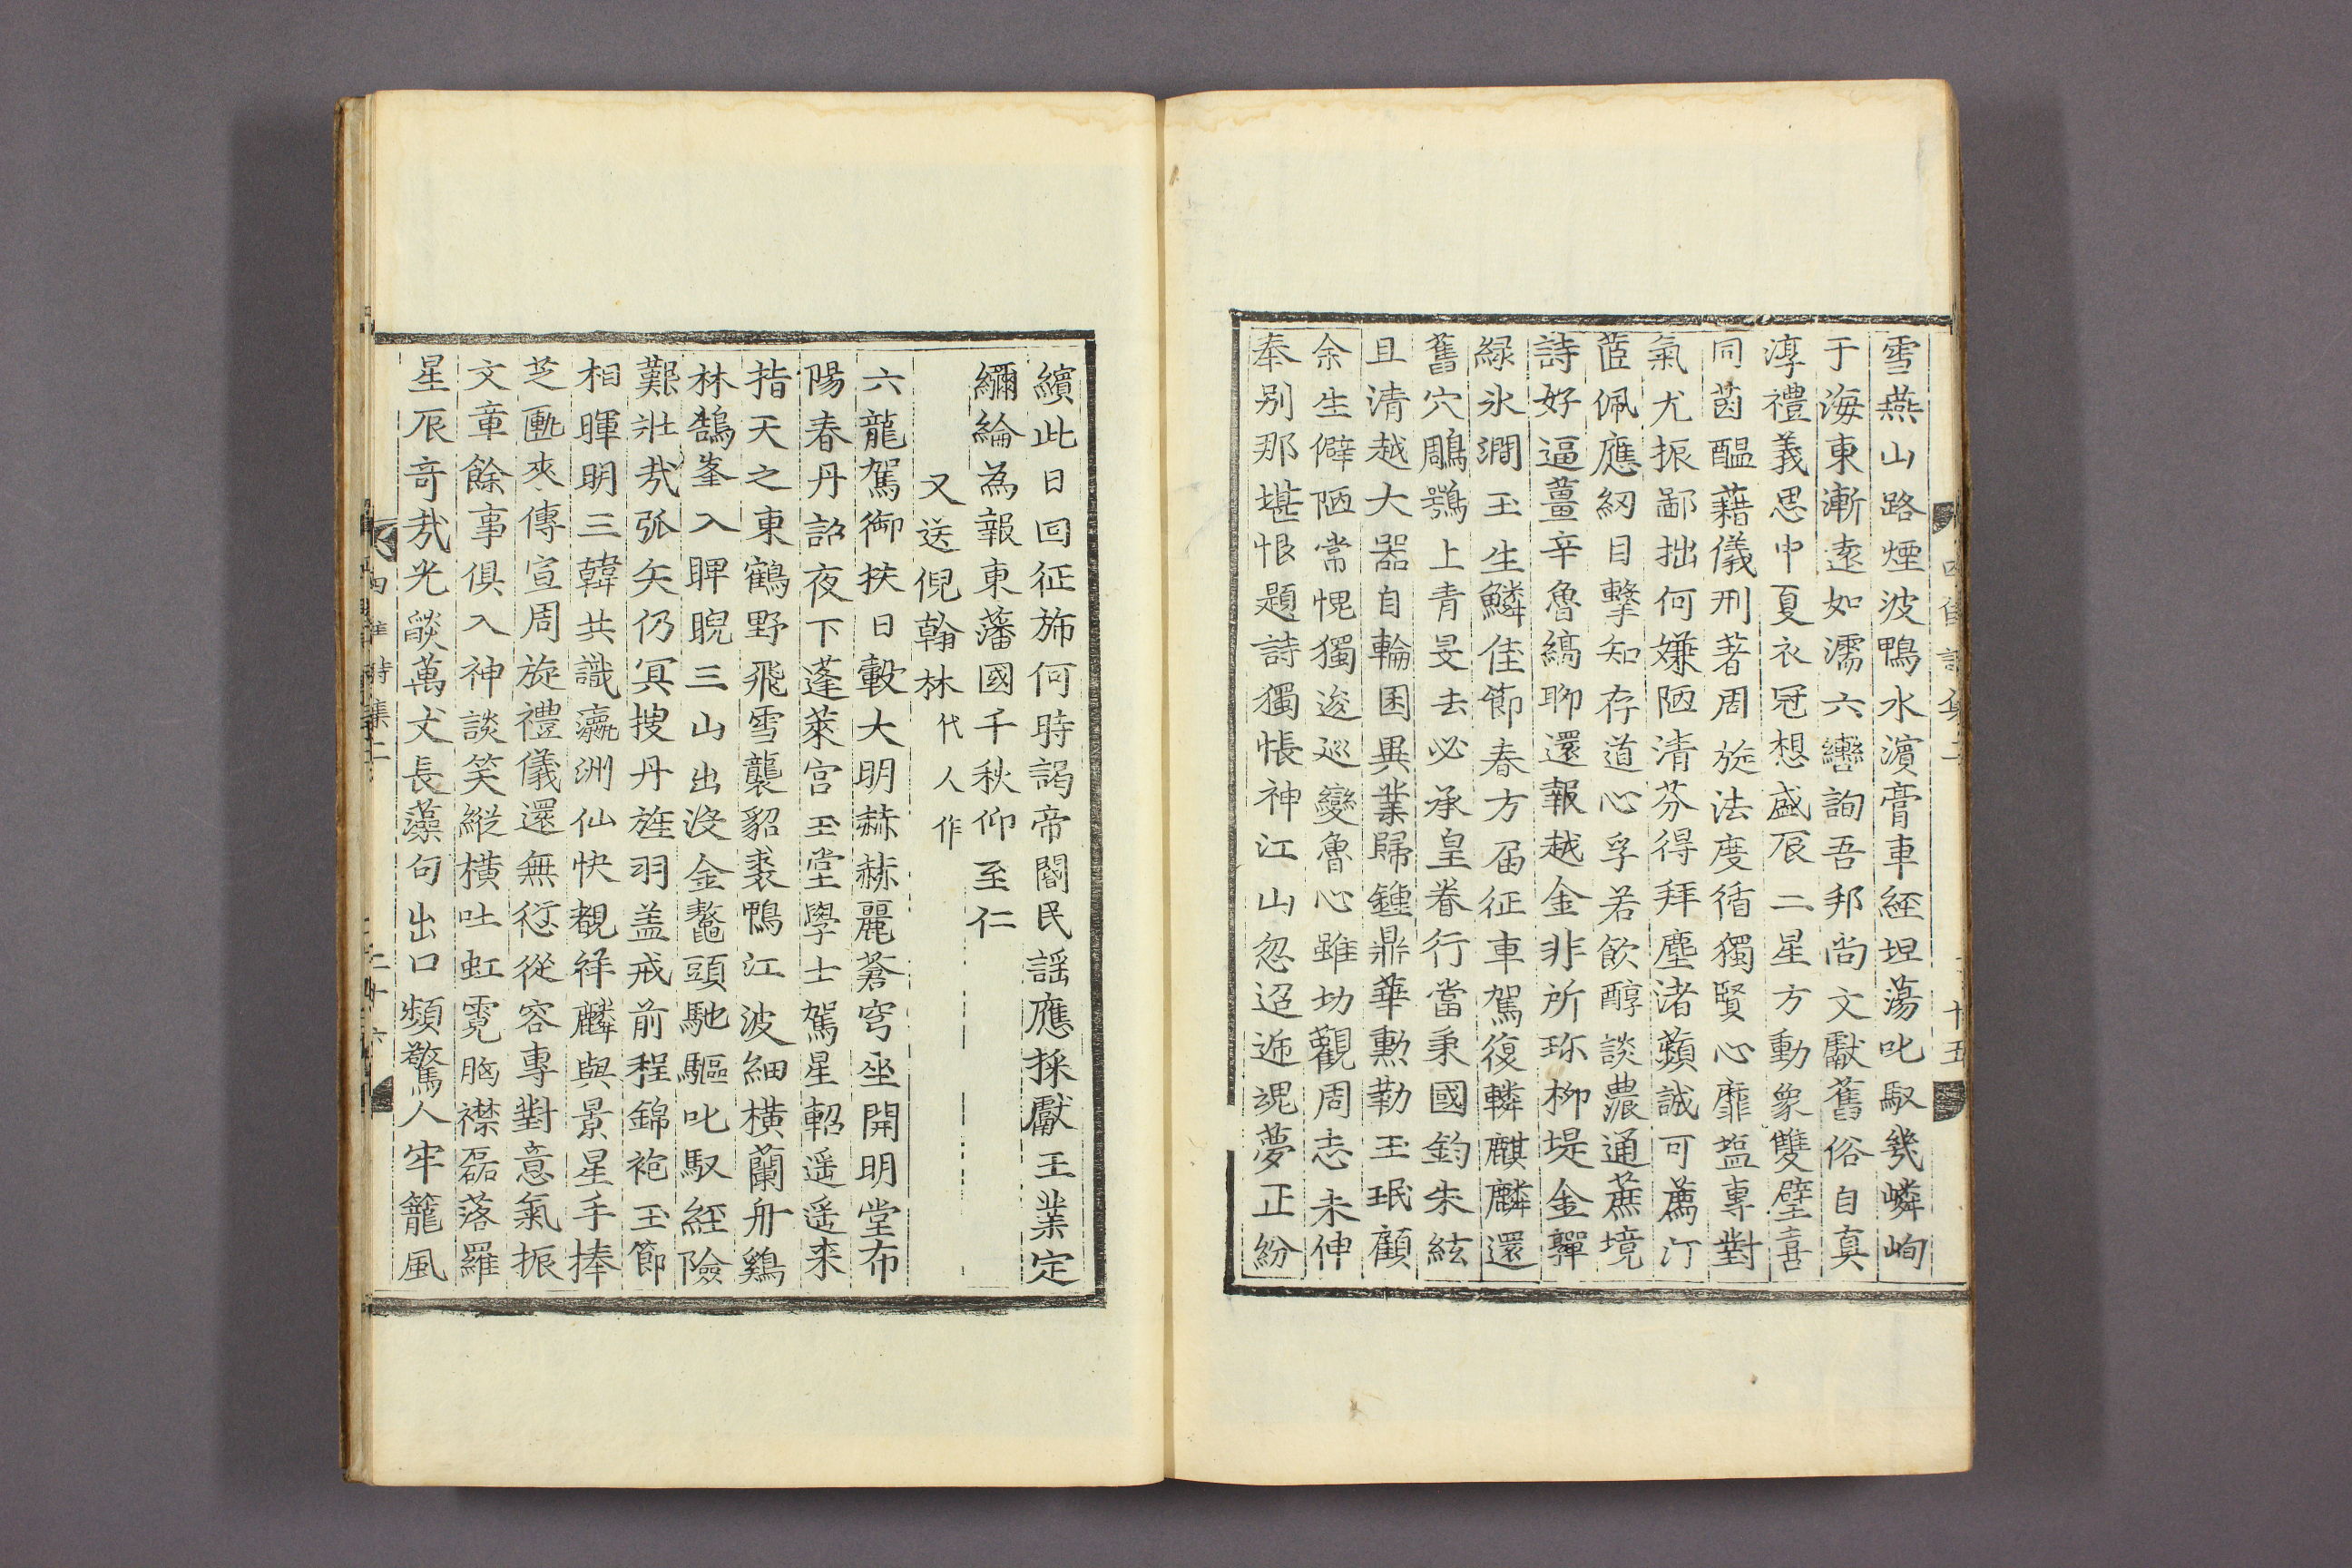 雪燕山路煙波鴨水濵膏車經坦蕩叱馭幾嶙峋
于海東漸逺如濡六轡詢吾邦尚文獻舊俗自真
淳禮義思中夏衣冠想盛辰二星方動象雙璧喜
同茵醖藉儀刑著周旋法度循獨賢心靡盬專對
氣尤振鄙拙何嫌陋清芬得拜塵渚蘋誠可薦汀
茝佩應紉目擊知存道心孚若飮醇談農通蔗境
詩好逼薑辛魯縞聊還報越金非所珎柳堤金嚲
緑氷澗玉生鱗佳節春方届征車駕復轔麒麟還
舊穴鵰鶚上青旻去必承皇眷行當秉國鈞朱絃
且清越大器自輪囷異業歸鍾鼎華勲勒玉珉顧
余生僻陋常愧獨逡巡變魯心雖切觀周志未伸
奉別那堪恨題詩獨悵神江山忽迢逓魂夢正紛
繽此日回征斾何時謁帝閽民謡應採獻王業定
繃綸為報東藩國千秋仰至仁
又送倪翰林代人作
六龍駕御扶日轂大明赫赫麗蒼穹坐開明堂布
陽春丹詔夜下蓬萊宫玉堂學士駕星軺遥遥来
指天之東鶴野飛雪襲貂裘鴨江波細横蘭舟鷄
林鵠峯入睥睨三山出沒金鼇頭馳驅叱馭經險
艱壯㢤弧矢仍冥搜丹旌羽盖戒前程錦袍玉節
相暉明三韓共識瀛洲仙快覩祥麟與景星手捧
芝𠥱來傳宣周旋禮儀還無愆從容專對意氣振
文章餘事俱入神談笑縦横吐虹霓胸襟磊落羅
星辰奇㢤光燄萬丈長藻句出口頻驚人牢籠風
四佳詩集二
二十六